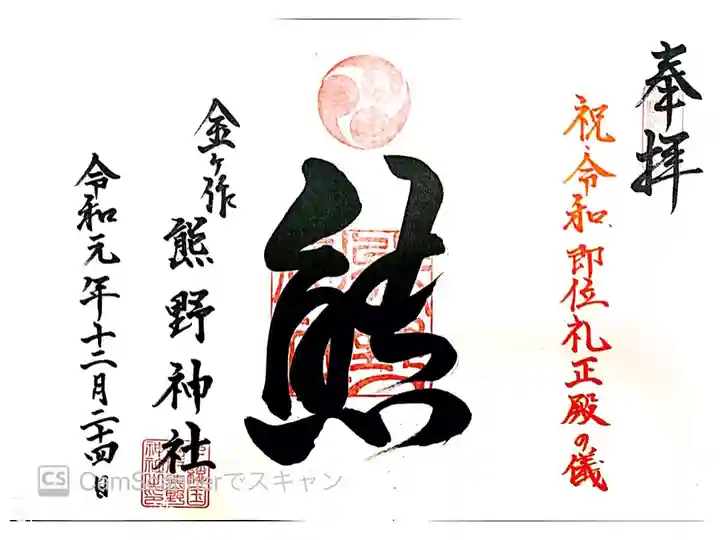 奉拝
祝・令和即位礼正殿の儀
熊
金ヶ作
熊野神社
令和元年十二月二十四日
CS CamScannerでスキャン